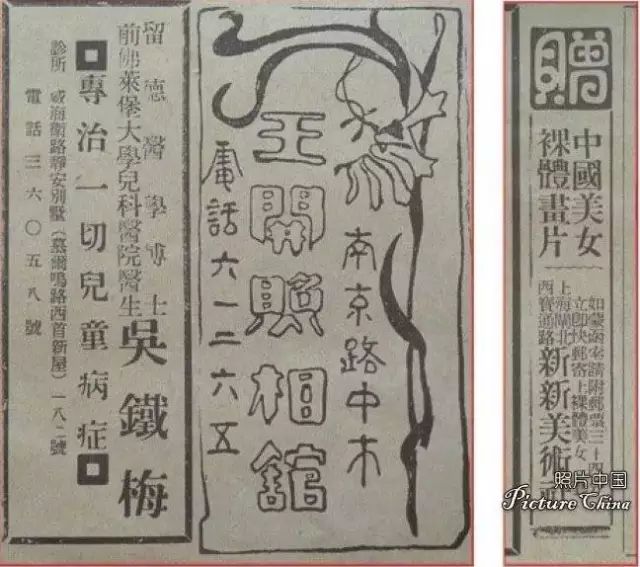 留德醫學博士
前佛萊堡大學兒科醫院醫生 吳鐵梅
專治一切兒童病症
診所 威海衛路靜安別墅(慕爾鳴路西首新屋)一八二號
電話三六〇五八號
南京路中市
王開照相館
電話六一二六五
贈
中國美女
裸體畫片
如蒙函索請附郵票三十四
立即快郵寄上裸體美女
上海閘北
西寶通路
新新美術社
照片中国
Picture China